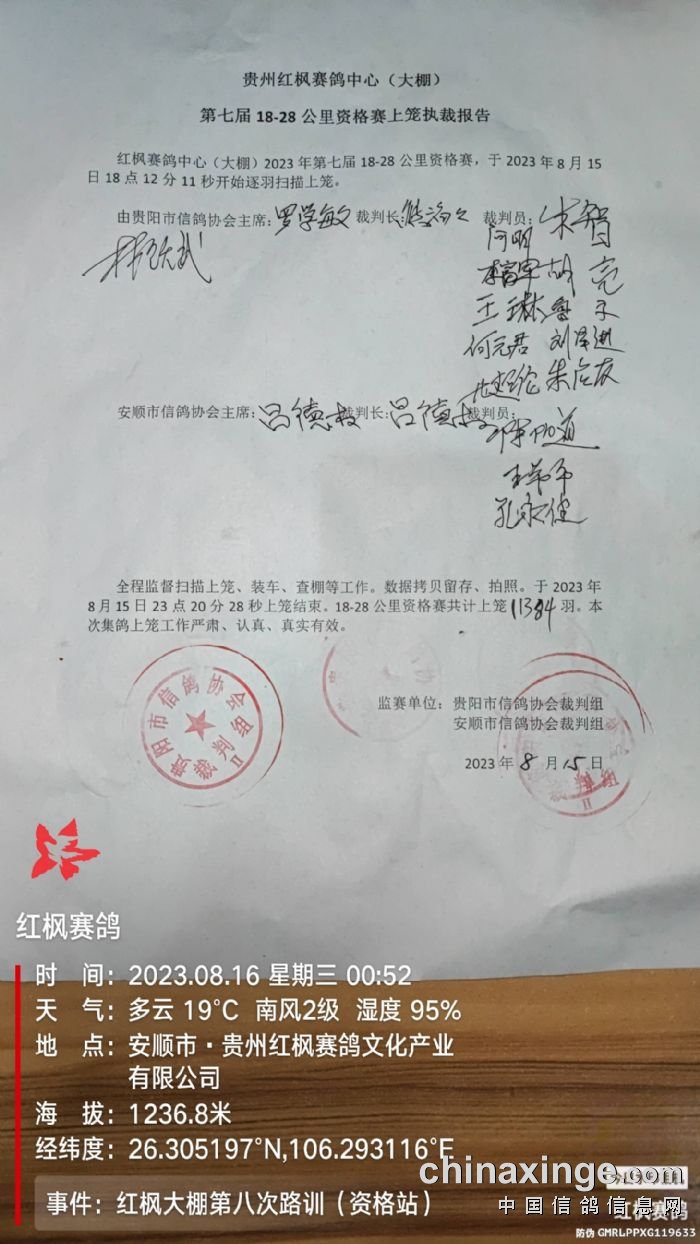 贵州红枫赛鸽中心（大棚）
第七届 18-28 公里资格赛上笼执裁报告
红枫赛鸽中心（大棚）2023 年第七届 18-28 公里资格赛，于 2023 年 8 月 15
日 18 点 12 分 11 秒开始逐羽扫描上笼。
由贵阳市信鸽协会主席：罗学敏 裁判长： 裁判员：朱智
何明
李富军 胡亮
王琳
何元君 刘泽进
朱应友
安顺市信鸽协会主席：吕德权 裁判长：吕德权 裁判员：
孔永健
全程监督扫描上笼、装车、查棚等工作。数据拷贝留存、拍照。于 2023 年
8 月 15 日 23 点 20 分 28 秒上笼结束。18-28 公里资格赛共计上笼 11384 羽。本
次集鸽上笼工作严肃、认真、真实有效。
贵阳市信鸽协会
裁判组
II
监赛单位：贵阳市信鸽协会裁判组
安顺市信鸽协会裁判组
2023 年 8 月 15 日
红枫赛鸽
时 间：2023.08.16 星期三 00:52
天 气：多云 19°C 南风2级 湿度 95%
地 点：安顺市·贵州红枫赛鸽文化产业
有限公司
海 拔：1236.8米
经纬度：26.305197°N,106.293116°E
事件：红枫大棚第八次路训（资格站）
chinaxinge.com
中国信鸽信息网
红枫赛鸽
防伪 GMRLPPXG119633